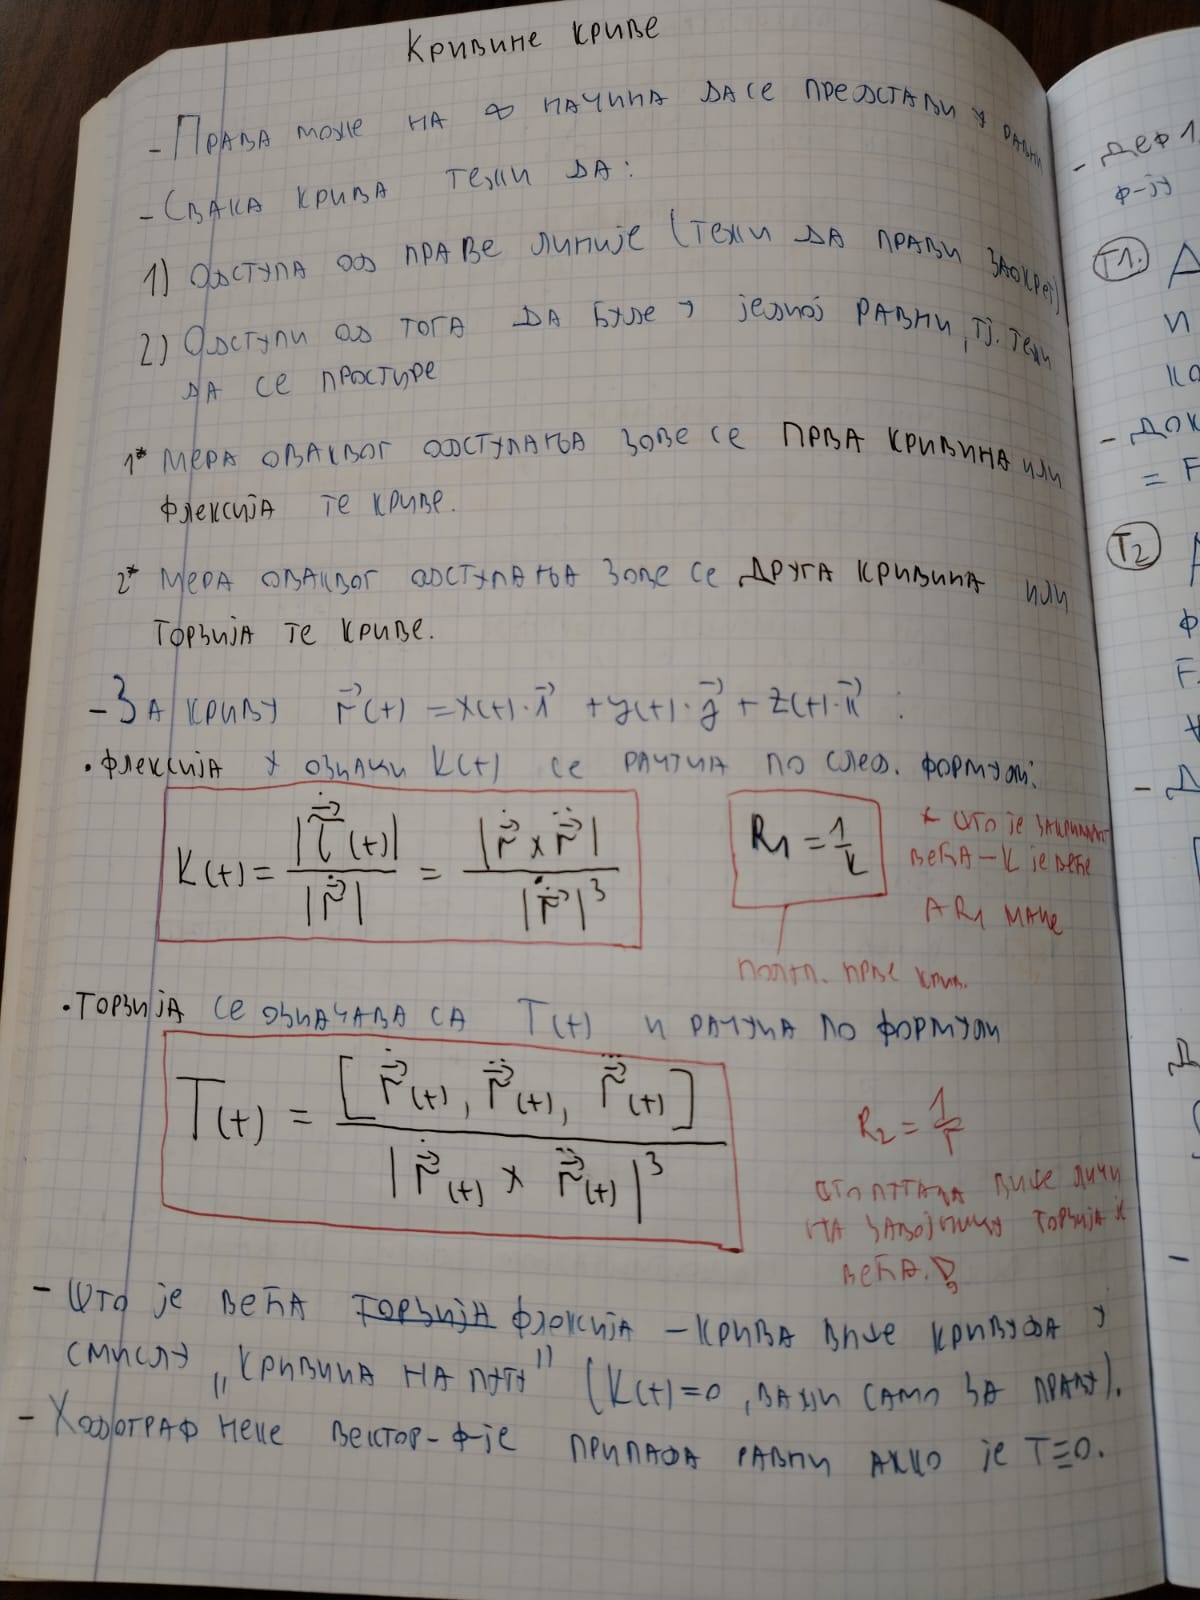 Кривине криве
- Права може на ∞ начина да се представи у равни
- Свака крива тежи да:
1) Одступа од праве линије (тежи да прави заокрет)
2) Одступи од тога да буде у једној равни, тј. тежи
да се простире
1* Мера оваквог одступања зове се прва кривина или
флексија те криве.
2* Мера оваквог одступања зове се друга кривина или
торзија те криве.
- За криву r⃗(t) = x(t)·i⃗ + y(t)·j⃗ + z(t)·k⃗ :
• флексија у ознаки K(t) се рачуна по след. формули:
K(t) = |τ⃗̇(t)| / |r⃗̇| = |r⃗̇ × r⃗̈| / |r⃗̇|³
R₁ = 1/k
* што је
већа – K је веће
а R₁ мање
полуп. прве крив.
• Торзија се означава са T(t) и рачуна по формули
T(t) = [r⃗̇(t), r⃗̈(t), r⃗⃛(t)] / |r⃗̇(t) × r⃗̈(t)|³
R₂ = 1/T
више личи
на завојницу торзија је
већа.!
- Што је већа ~~торзија~~ флексија – крива више кривуда у
смислу „кривина на путу” (K(t)=0, важи само за праву).
- Ходограф неке вектор-ф-је припада равни акко је T≡0.
- Деф 1.
ф-ју
T1.
и
- Док
= F
T2